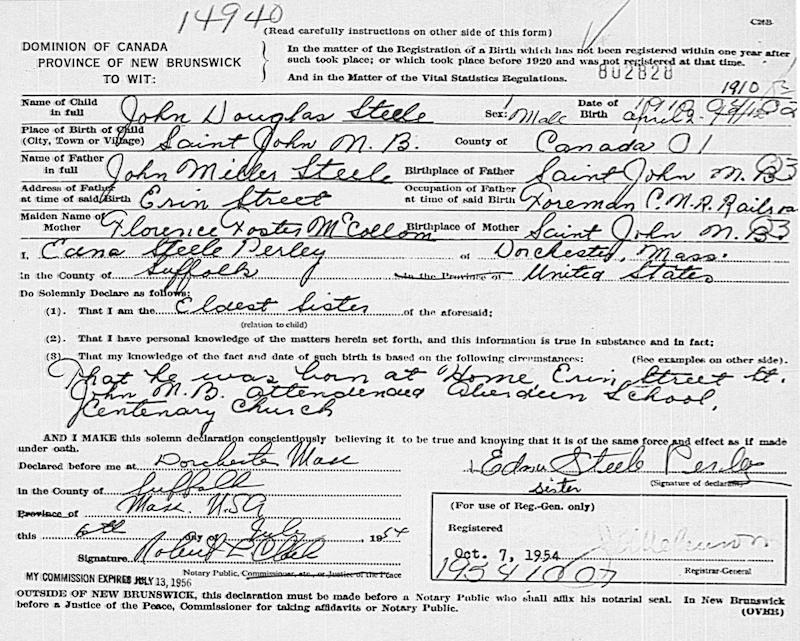 14940
(Read carefully instructions on other side of this form)
C26B
DOMINION OF CANADA
PROVINCE OF NEW BRUNSWICK
TO WIT:
In the matter of the Registration of a Birth which has not been registered within one year after
such took place; or which took place before 1920 and was not registered at that time.
And in the Matter of the Vital Statistics Regulations.
802828
1910
Name of Child in full John Douglas Steele Sex: Male Date of Birth April 2
Place of Birth of Child (City, Town or Village) Saint John N.B. County of Canada 01
Name of Father in full John Miller Steele Birthplace of Father Saint John N.B. 03
Address of Father at time of said Birth Erin Street Occupation of Father at time of said Birth Foreman C.N.R. Railroa
Maiden Name of Mother Florence Foster McCollom Birthplace of Mother Saint John N.B. 03
I, Edna Steele Perley of Dorchester, Mass.
in the County of Suffolk in the Province of United States
Do Solemnly Declare as follows:
(1). That I am the Eldest Sister of the aforesaid;
(relation to child)
(2). That I have personal knowledge of the matters herein set forth, and this information is true in substance and in fact;
(3) That my knowledge of the fact and date of such birth is based on the following circumstances: (See examples on other side).
That he was born at Home Erin Street St.
John N.B. attendended Aberdeen School,
Centenary Church
AND I MAKE this solemn declaration conscientiously believing it to be true and knowing that it is of the same force and effect as if made
under oath.
Declared before me at Dorchester Mass
Edna Steele Perley
in the County of Suffolk
sister (Signature of declarant)
Province of Mass. USA
this 6th day of July, 1954
Signature Robert
Notary Public, Commissioner, etc., or Justice of the Peace
MY COMMISSION EXPIRES JULY 13, 1956
(For use of Reg.-Gen. only)
Registered
Oct. 7, 1954
19541007
Registrar-General
OUTSIDE OF NEW BRUNSWICK, this declaration must be made before a Notary Public who shall affix his notarial seal. In New Brunswick
before a Justice of the Peace, Commissioner for taking affidavits or Notary Public.
(OVER)